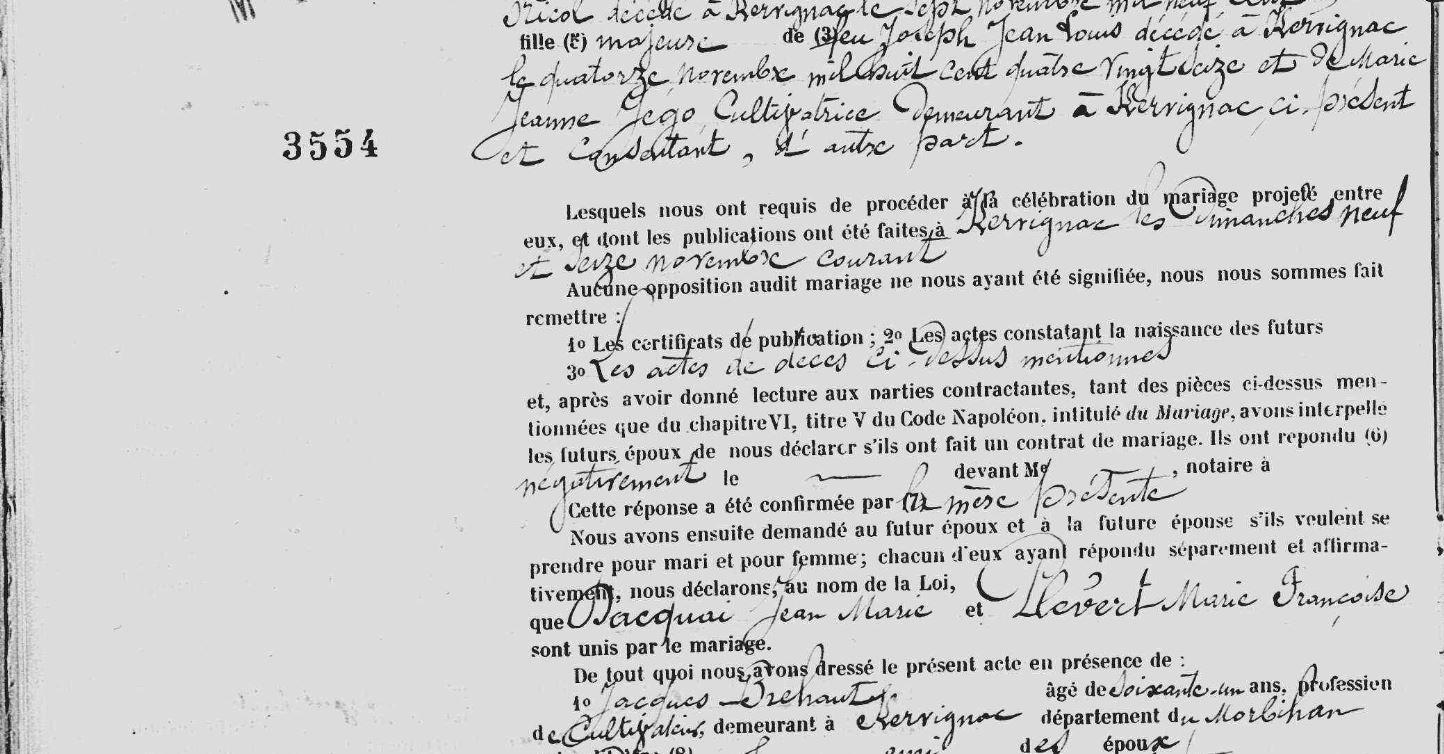 décédé à Kervignac le sept novembre mil neuf cent
fille (5) majeure de (3) feu Joseph Jean Louis décédé à Kervignac
le quatorze novembre mil huit cent quatre vingt seize et de Marie
Jeanne Jégo, Cultivatrice demeurant à Kervignac, ci-présent
et consentant, d'autre part.
3554
Lesquels nous ont requis de procéder à la célébration du mariage projeté entre
eux, et dont les publications ont été faites à Kervignac les dimanches neuf
et seize novembre courant
Aucune opposition audit mariage ne nous ayant été signifiée, nous nous sommes fait
remettre :
1º Les certificats de publication ; 2º Les actes constatant la naissance des futurs
3º Les actes de décès ci-dessus mentionnés
et, après avoir donné lecture aux parties contractantes, tant des pièces ci-dessus men-
tionnées que du chapitre VI, titre V du Code Napoléon, intitulé du Mariage, avons interpellé
les futurs époux de nous déclarer s'ils ont fait un contrat de mariage. Ils ont répondu (6)
négativement le — devant Me — , notaire à
Cette réponse a été confirmée par (7) la mère présente
Nous avons ensuite demandé au futur époux et à la future épouse s'ils veulent se
prendre pour mari et pour femme ; chacun d'eux ayant répondu séparément et affirma-
tivement, nous déclarons, au nom de la Loi,
que Jean Marie et Plévert Marie Françoise
sont unis par le mariage.
De tout quoi nous avons dressé le présent acte en présence de :
1º Jacques Bréhaut âgé de soixante-un ans, profession
de Cultivateur, demeurant à Kervignac département du Morbihan
(8) ami des époux